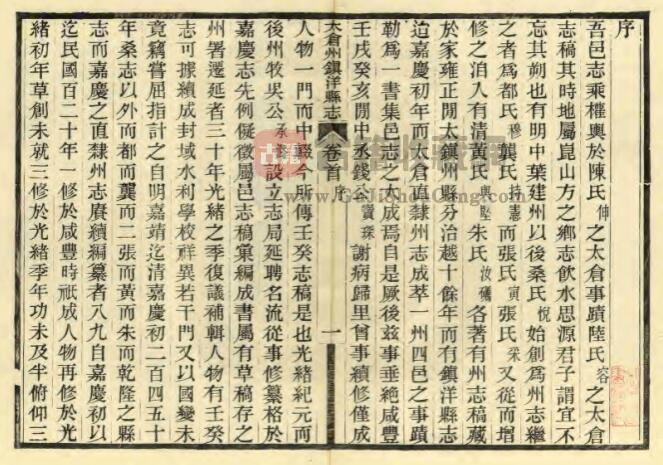 序
吾邑志乘權輿於陳氏伸之太倉事蹟陸氏容之太倉
志稿其時地屬崑山方之鄉志飲水思源君子謂宜不
忘其朔也有明中葉建州以後桑氏悅始創為州志繼
之者為都氏穆龔氏持憲而張氏寅張氏采又從而增
修之洎入有清黃氏與堅朱氏汝礪各著有州志稿藏
於家雍正閒太鎮州縣分治越十餘年而有鎮洋縣志
迨嘉慶初年而太倉直隸州志成萃一州四邑之事蹟
勒為一書集邑志之大成焉自是厥後茲事垂絕咸豐
壬戌癸亥閒中丞錢公寶琛謝病歸里曾事續修僅成
太倉州鎮洋縣志
卷首
序
一
人物一門而中輟今所傳壬癸志稿是也光緒紀元而
後州牧吳公承潞設立志局延聘名流從事修纂格於
嘉慶志先例僅徵屬邑志稿彙編成書屬有草稿存之
州署遷延者三十年光緒之季復議補輯人物有壬癸
志可據續成封域水利學校祥異若干門又以國變未
竟竊嘗屈指計之自明嘉靖迄清嘉慶初二百四五十
年桑志以外而都而龔而二張而黃而朱而乾隆之縣
志而嘉慶之直隸州志賡續編纂者八九自嘉慶初以
迄民國百二十年一修於咸豐時祇成人物再修於光
緒初年草創未就三修於光緒季年功未及半俯仰三
www.GuJiShuCang.com